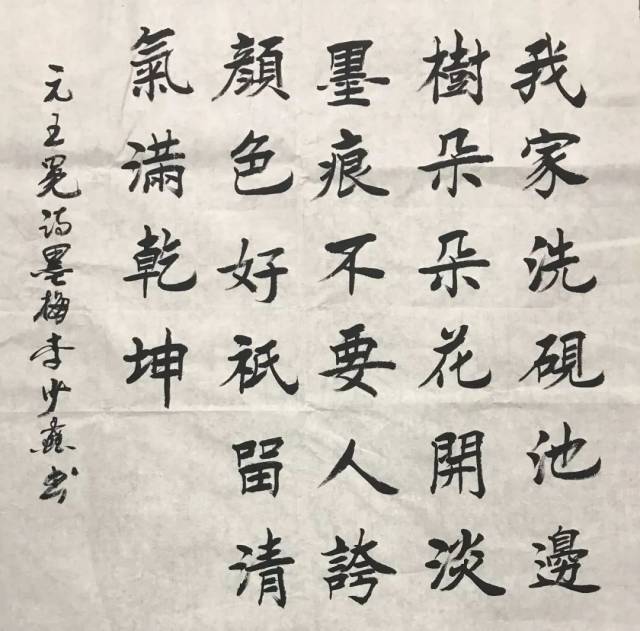 我家洗硯池邊
樹朵朵花開淡
墨痕不要人誇
顏色好祇留清
氣滿乾坤
元王冕詩墨梅李少鑫书